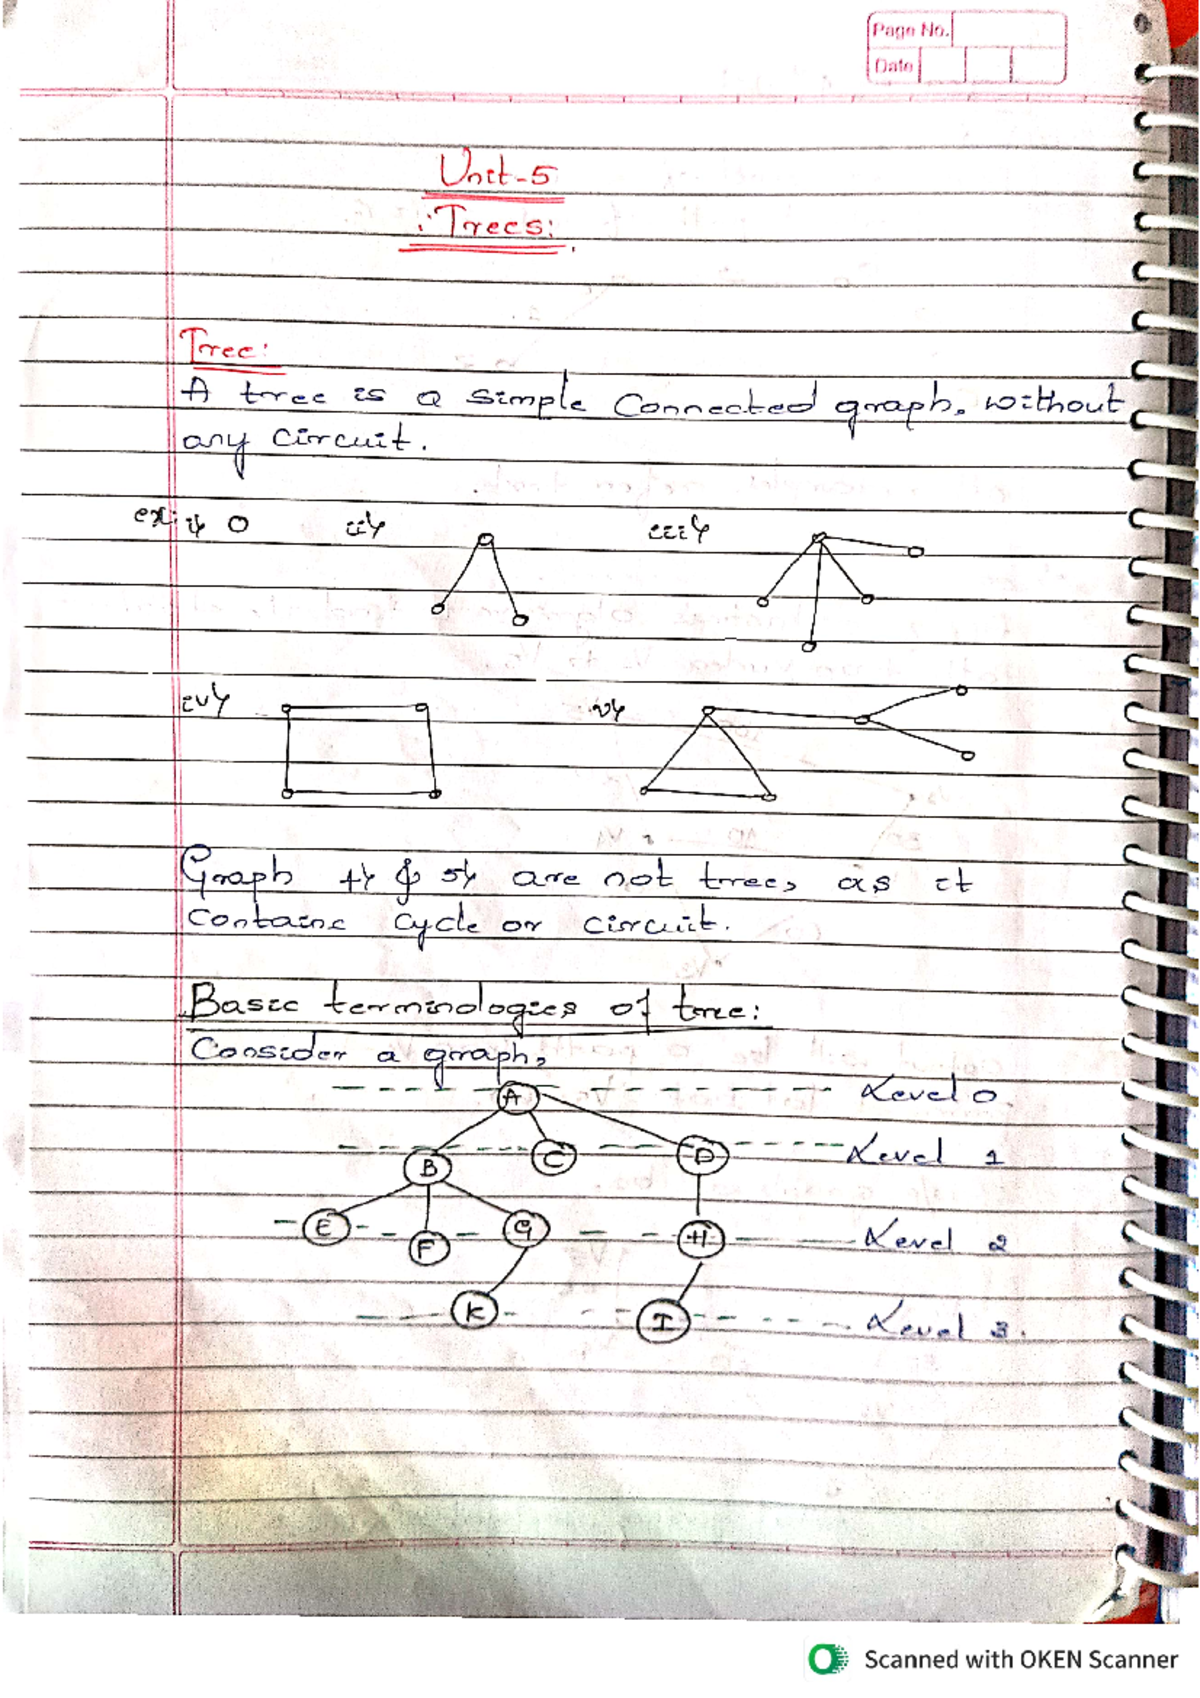 Page No.
Date
Unit-5
:Trees:
Tree:
A tree is a simple connected graph, without
any circuit.
ex: i) ii) iii)
iv) v)
Graph 4) & 5) are not tree, as it
contains cycle or circuit.
Basic terminologies of tree:
Consider a graph,
A Level 0.
B C D Level 1
E F G H Level 2
K I Level 3.
Scanned with OKEN Scanner